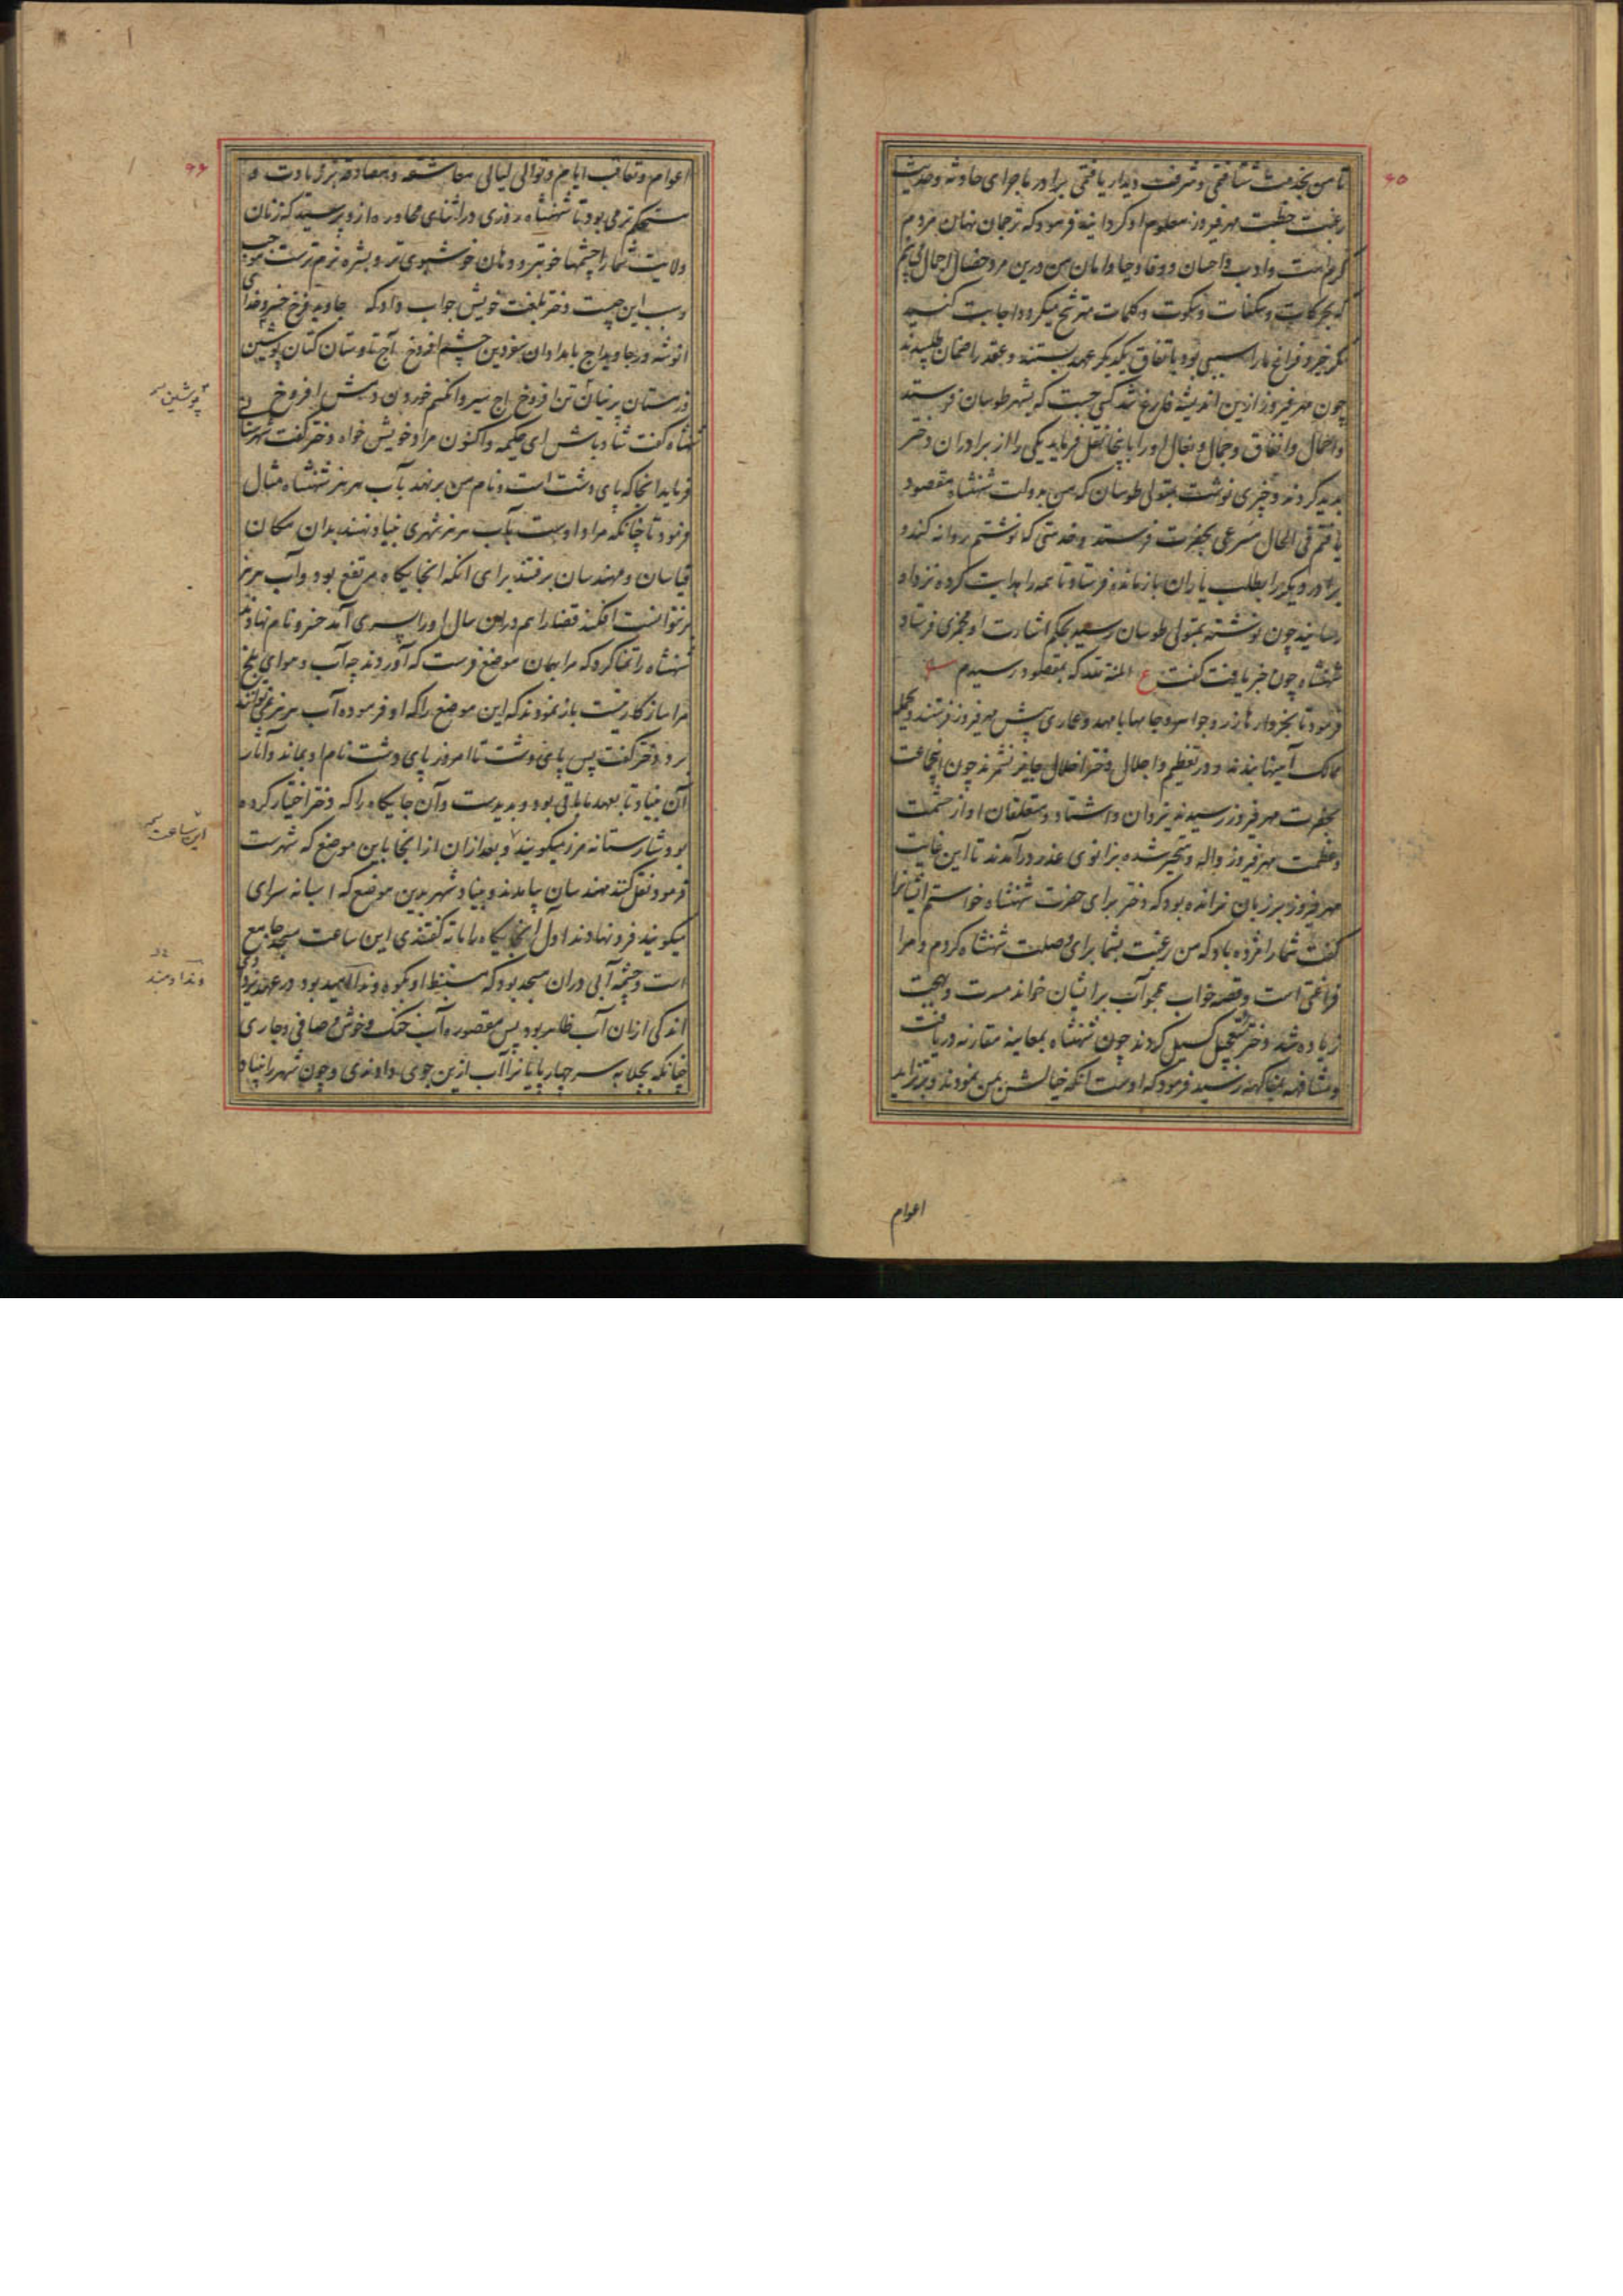 ۶۵
تا من بخدمت شتافتمی و شرفت دیدار یافتمی برادر ماجرای حادثه و حدیث
رغبت خطبت مهرفیروز معلوم او گردانید فرمود که ترجمان نهان مردم
کرم است و ادب و احسان و وفا و حیا و امان من درین مرد خصال اجمال می بینم
که بحرکات و سکنات و سکوت و کلمات مترشح میگردد اجابت کنید
مگر خیر و فراغ ما را سببی بود باتفاق یکدیگر عهد بستند و عقد را ضمان طلبیدند
چون مهرفیروز ازین اندیشه فارغ شد کسی جست که بشهر طوسان فرستد
و احمال و انفاق و جمال و بغال او را بآنجا نقل فرماید یکی را از برادران دختر
پدید کردند و چیزی نوشت بمتولی طوسان که من بدولت شهنشاه مقصود
یافتم فی الحال مسرعی بحضرت فرستد و خدمتی که نوشتم روانه کند و
برادر دیگر را بطلب یاران بازمانده فرستاد تا همه را هدایت کرده نزد او
رسانید چون نوشته بمتولی طوسان رسید بحکم اشارت او مخبری فرستاد
شهنشاه چون خبر یافت گفت ع المنة لله که بمقصود رسیدم
فرمود تا بخروارها زر و جواهر و جامها با مهد و عماری پیش مهرفیروز فرستند و بجمله
ممالک آمینها بندند و در تعظیم و اجلال دختر اخلال جایز نشمرند چون این جماعت
بحضرت مهرفیروز رسیدند یزدان و اشتاد و متعلقان او از حشمت
و عظمت مهرفیروز واله و متحیر شده بزانوی عذر درآمدند تا این غایت
مهرفیروز بر زبان نرانده بود که دختر برای حضرت شهنشاه خواستم ایشانرا
گفت شما را مژده باد که من رغبت بشما برای وصلت شهنشاه کردم و مرا
فراغتی است و قصه خواب عجوآب بر ایشان خواند مسرت و بهجت
زیاده شد و دختر بتعجیل گسیل کردند چون شهنشاه بمعاینه مقارنه دریافت
و مشافهه بمفاکهه رسید فرمود که اوست آنکه خیالش بمن نمودند و بتزاید
اعوام
۶۶
اعوام و تعاقب ایام و توالی لیالی معاشقه و مصادقه بزیادت و
مستحکم تر می بود تا شهنشاه روزی در اثنای محاوره ازو پرسید که زنان
ولایت شما را چشمها خوبتر و دهان خوشبوی تر و بشره نرم ترست موجب
و سبب این چیست دختر بلغت خویش جواب داد که جاوید فرخ خسرو خدای
انوشه ور جاوید اج بامدادان بغودین چشم افروخ آج تاوستان کتان پوشین
و زمستان پرنیان تن افروخ اج سیر و انگتم خوردن دهش افروخ
شهنشاه گفت شاد باش ای حکیمه و اکنون مراد خویش خواه دختر گفت شهرستانی
فرماید آنجا که پای دشت است و نام من برنهد بآب هرمز شهنشاه مثال
فرمود تا چنانکه مراد اوست بآب هرمز شهری بنیاد نهند بدان مکان
قیاسان و مهندسان برفتند برای آنکه آنجایگاه مرتفع بود و آب هرمز
بر نتوانست افکند قضا را هم درین سال او را پسری آمد خسرو نام نهادند
شهنشاه را تمنا کرد که مرا بهمان موضع فرست که آوردند چه آب و هوای بلخ
مرا سازگار نیست باز نمودند که این موضع را که او فرموده آب هرمز نمی توانند
برد دختر گفت پس پای دشت تا امروز پای دشت نام او بماند و آثار
آن بنیاد تا بعهد ما باقی بود و پدیدست و آن جایگاه را که دختر اختیار کرده
بود شارستانه مرز میگویند و بعد ازان از آنجا باین موضع که شهرست
فرمود نقل کنند مهندسان بیامدند و بنیاد شهر بدین موضع که اسپانه سرای
میگویند فرو نهادند اول آنجایگاه را ماته گفتندی این ساعت مسجد جامع
است و چشمه آبی دران مسجد بود که مستنبط او بکوه ونداامید بود در عهد یزدگرد
اندکی ازان آب ظاهر بود پس مقصوره آب خنک و خوش و صافی و جاری
چنانکه بجلابه سر چهارپایانرا آب ازین جوی دادندی و چون شهر را بنیاد
پوشین
این ساعت
ونداد مند